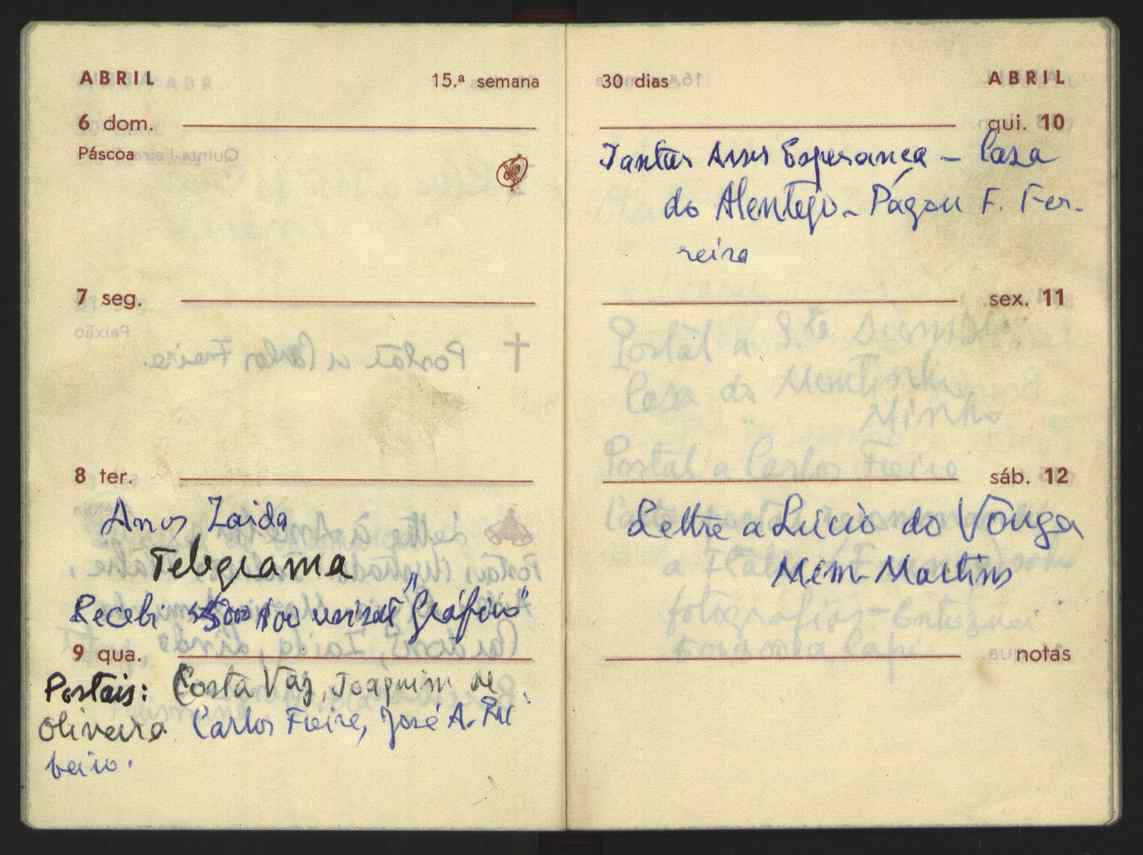 ABRIL 15.ª semana
6 dom.
Páscoa
7 seg.
8 ter.
Anos Zaida
Telegrama
Recebi $00 "Gráfico"
9 qua.
Postais: Costa Vaz, Joaquim de
Oliveira Carlos Freire, José A. Ri
beiro.
30 dias ABRIL
qui. 10
Jantar Anos Esperança - Casa
do Alentejo - Pagou F. Fer-
reira
sex. 11
sáb. 12
Lettre a Lúcio do Vouga
Mem-Martins
notas